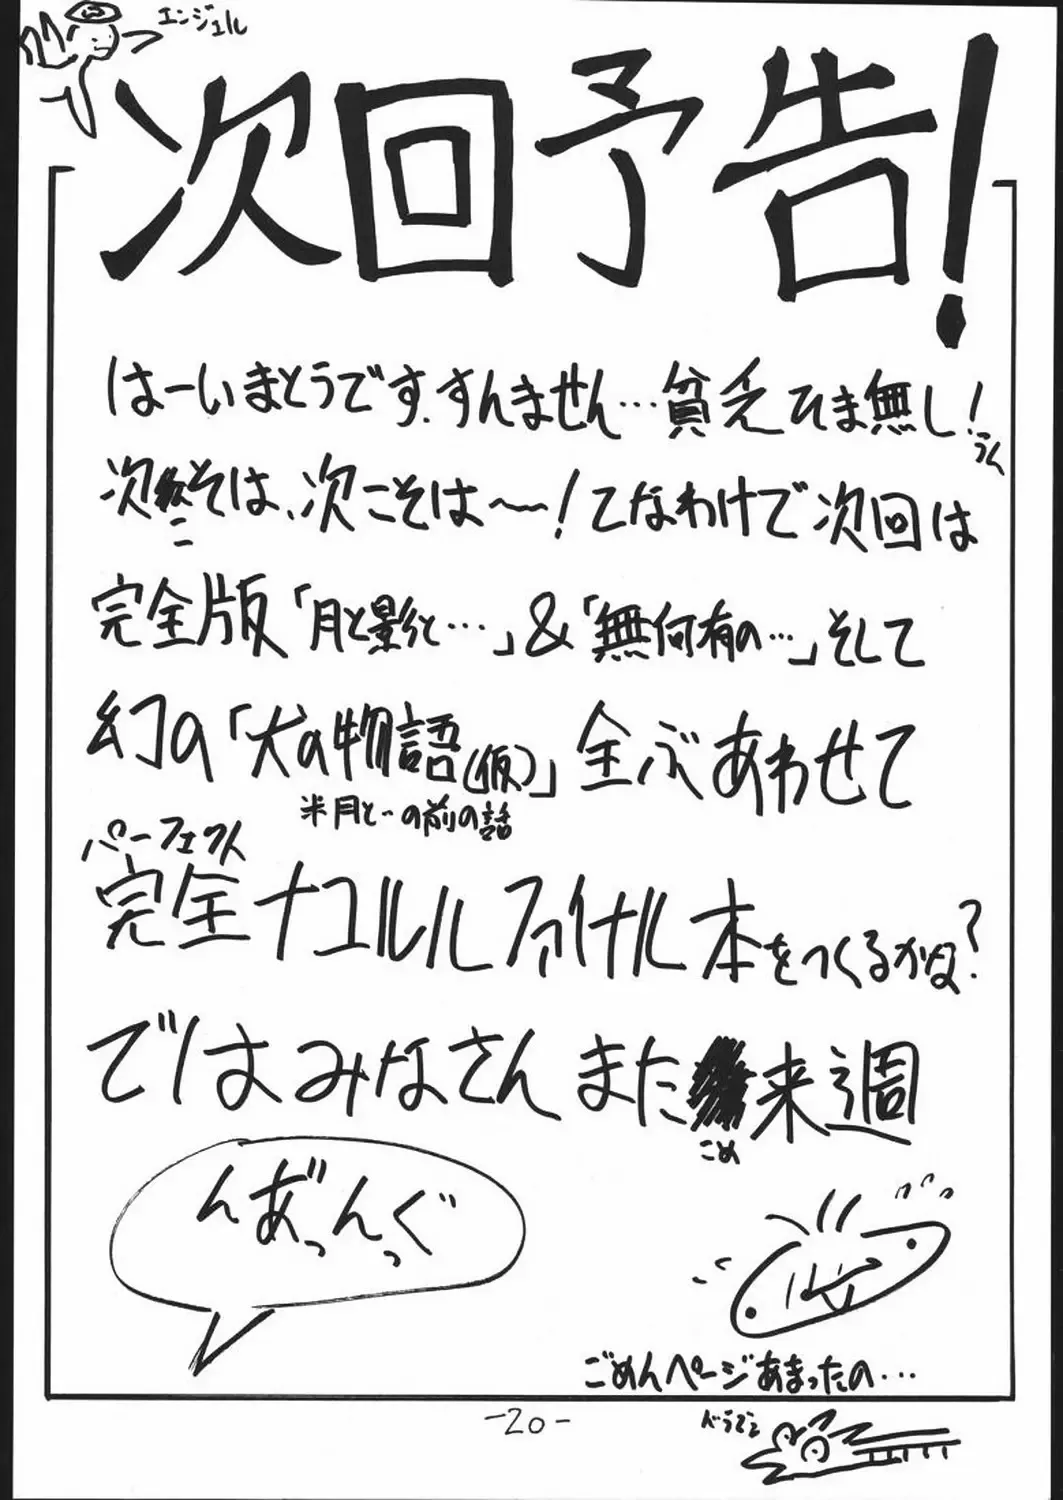 エンジェル
次回予告!
はーいまとうです、すんません…貧乏ひま無し!
次こそは、次こそは〜!てなわけで次回は
完全版「月と影と…」&「無何有の…」そして
幻の「犬の物語(仮)」全ぶあわせて
※月と…の前の話
パーフェクト
完全ナコルルファイナル本をつくるかな?
ではみなさんまた来週
ごめ
んあ゛っんっぐ
ごめんページあまったの…
-20-